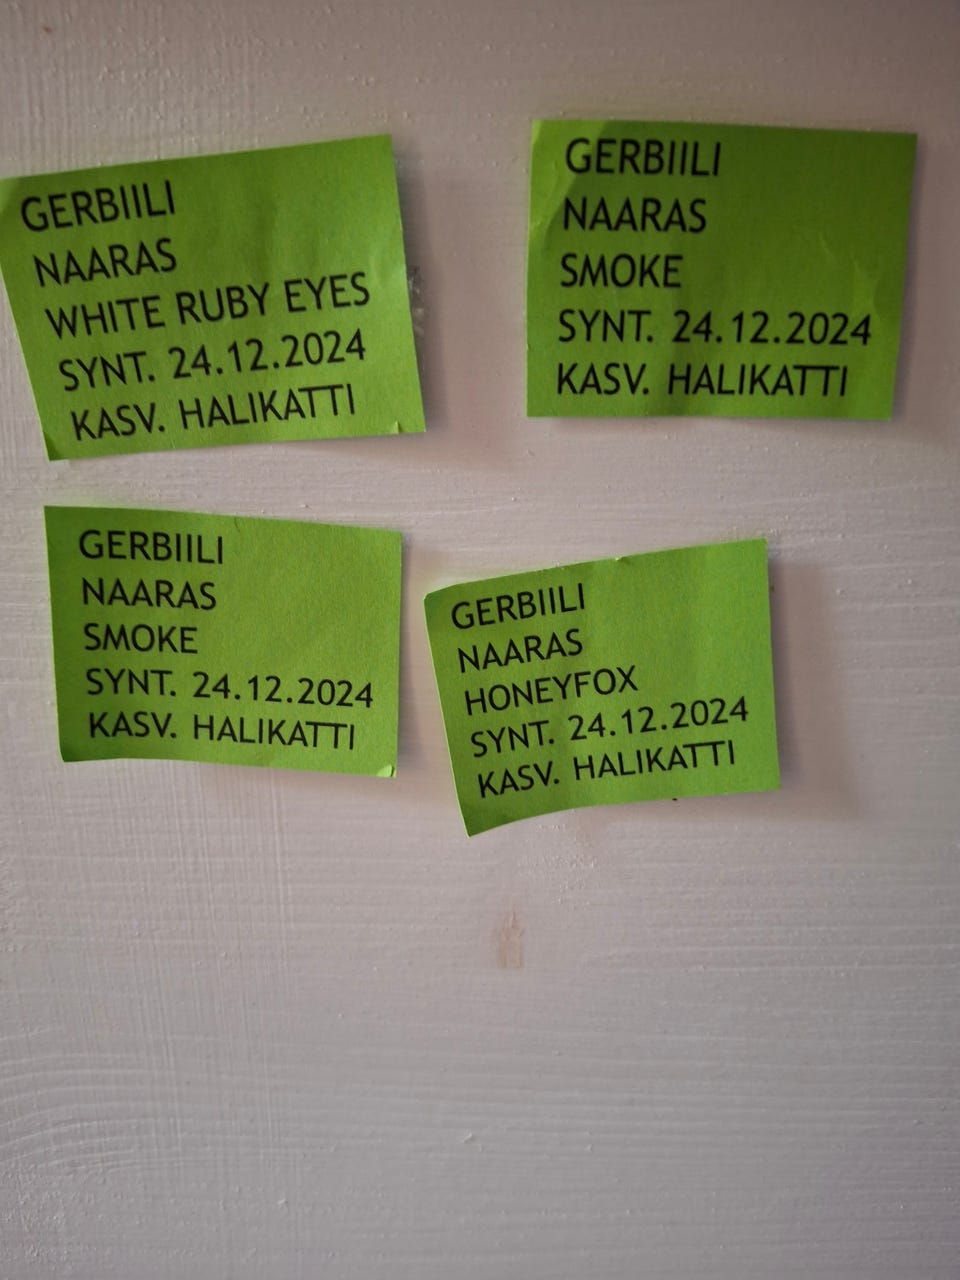 GERBIILI
NAARAS
WHITE RUBY EYES
SYNT. 24.12.2024
KASV. HALIKATTI
GERBIILI
NAARAS
SMOKE
SYNT. 24.12.2024
KASV. HALIKATTI
GERBIILI
NAARAS
SMOKE
SYNT. 24.12.2024
KASV. HALIKATTI
GERBIILI
NAARAS
HONEYFOX
SYNT. 24.12.2024
KASV. HALIKATTI